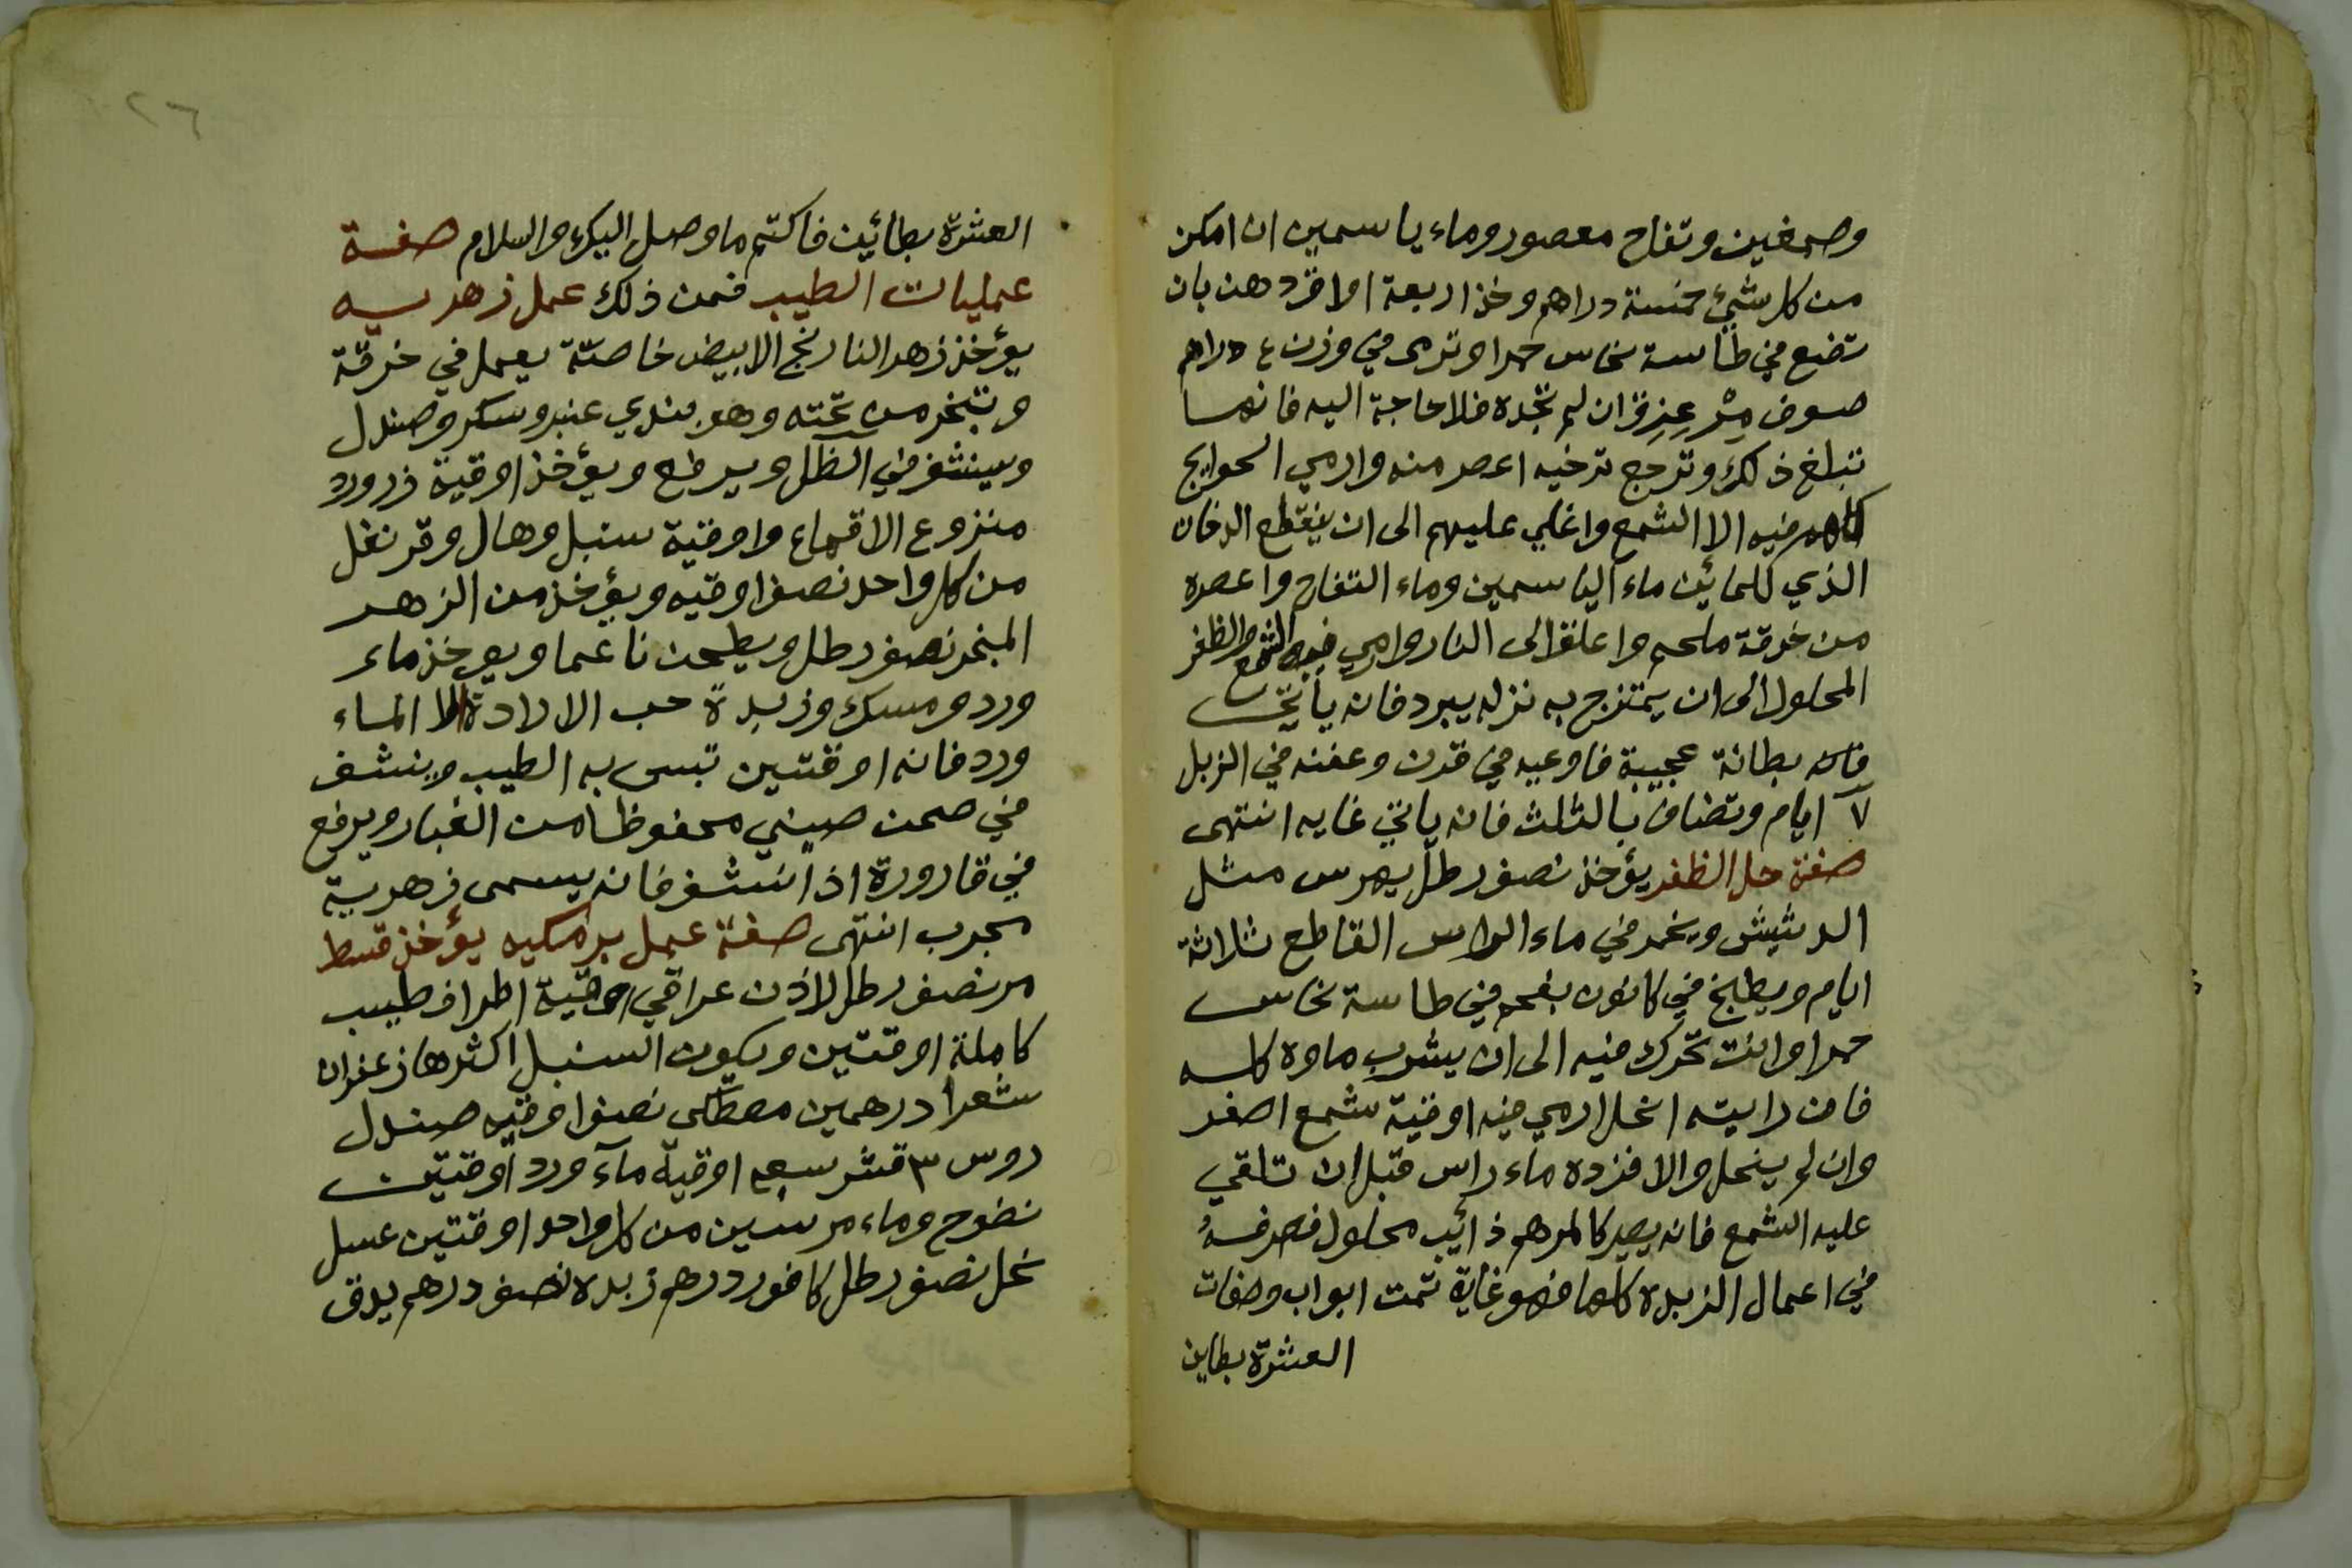 وصمغين وتفاح معصور وماء ياسمين ان امكن
من كل شيئ خمسة دراهم وخذ اربعة اواق دهن بان
تضع في طاسة نحاس حمرا وترمى في وزن ٤ دراهم
صوف ان لم تجده فلا حاجة اليه فانها
تبلغ ذلك وترجع ترخيه اعصر منه وارمي الحوايج
كلهم فيه الا الشمع واغلي عليهم الى ان ينقطع الدخان
الذي للمائين ماء الياسمين وماء التفاح واعصره
من خرقة ملحم واعلق الى النار وارمي فيه الشمع والظفر
المحلول الى ان يمتزج به نزله يبرد فانه يأتي
فانه بطانة عجيبة فاوعيه في قدن وعفنه في الزبل
٧ ايام وتضاف بالثلث فانه ياتي غايه انتهى
صفة حل الظفر يؤخذ نصف رطل يهرس مثل
الدشيش ويخمر في ماء الراس القاطع ثلاثة
ايام ويطبخ في كانون بفحم في طاسة نحاس
حمرا وانت تحرك فيه الى ان يشرب ماوه كله
فان رايته انحل ارمي فيه اوقية شمع اصفر
وان لم ينحل والا فزده ماء راس قبل ان تلقي
عليه الشمع فانه يصير كالمرهم ذائب محلول فصرفهُ
في اعمال الزبدة كلها فهو غاية تمت ابواب وصفات
العشرة بطاين
٢٦
العشرة بطائين فاكتم ما وصل اليك والسلام صفة
عمليات الطيب فمن ذلك عمل زهريه
يؤخذ زهر النارنج الابيض خاصّة يعمل في خرقة
وتبخر من تحته وهو بندي عنبر وسكر وصندل
وينشف في الظل ويرفع ويؤخذ اوقية زر ورد
منزوع الاقماع واوقية سنبل وهال وقرنفل
من كل واحد نصف اوقيه ويؤخذ من الزهر
المبخر نصف رطل ويطحن ناعما ويؤخذ ماء
ورد ومسك وزبدة حب الارادة الماء
ورد فانه اوقتين تبسى به الطيب وينشف
في صحن صيني محفوظا من الغبار ويرفع
في قارورة اذا نشف فانه يسمى زهرية
مجرب انتهى صفة عمل برمكيه يؤخذ قسط
مر نصف رطل لاذن عراقي اوقية اطراف طيب
كاملة اوقتين ويكون السنبل اكثرها زعفران
شعرا درهمين مصطكى نصف اوقيه صندل
روس ٣ قشر اوقية مآء ورد اوقتين
نضوح وماء مرسين من كل واحد اوقتين عسل
نحل نصف رطل كافور درهم زبده نصف درهم يدق